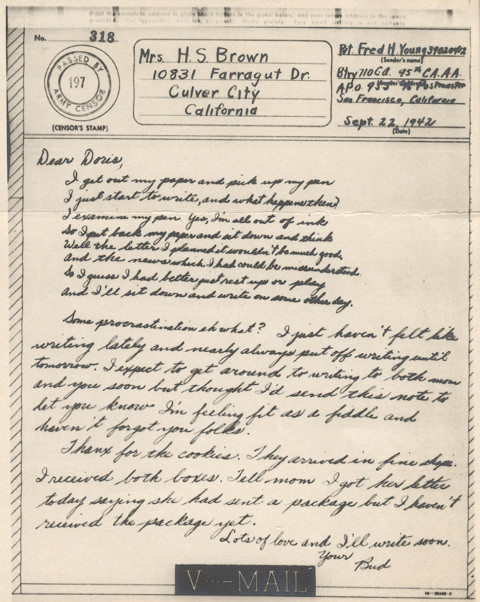 No. 318
PASSED BY
197
ARMY CENSOR
(CENSOR'S STAMP)
Mrs. H. S. Brown
10831 Farragut Dr.
Culver City
California
Pvt. Fred H Young 39020412
(Sender's name)
Btry 710 Cd. 95th CA.AA.
A P o. 953 % Postmaster
San Francisco, California
Sept. 22, 1942
(Date)
Dear Doris,
I get out my paper and pick up my pen
I just start to write, and what happens then?
I examine my pen Yes, I'm all out of ink
So I put back my paper and sit down and think
Well the letter I planned it wouldn't be much good,
and the news which I had could be misunderstood.
So I guess I had better just rest up or play
and I'll sit down and write on some other day.
Some procrastination eh what? I just haven't felt like
writing lately and nearly always put off writing until
tomorrow. I expect to get around to writing to both mom
and you soon but thought I'd send this note to
let you know I'm feeling fit as a fiddle and
haven't forgot you folks.
Thanx for the cookies. They arrived in fine shape.
I received both boxes. Tell mom I got her letter
today saying she had sent a package but I haven't
received the package yet.
Lots of love and I'll write soon.
Your
Bud
V···-MAIL